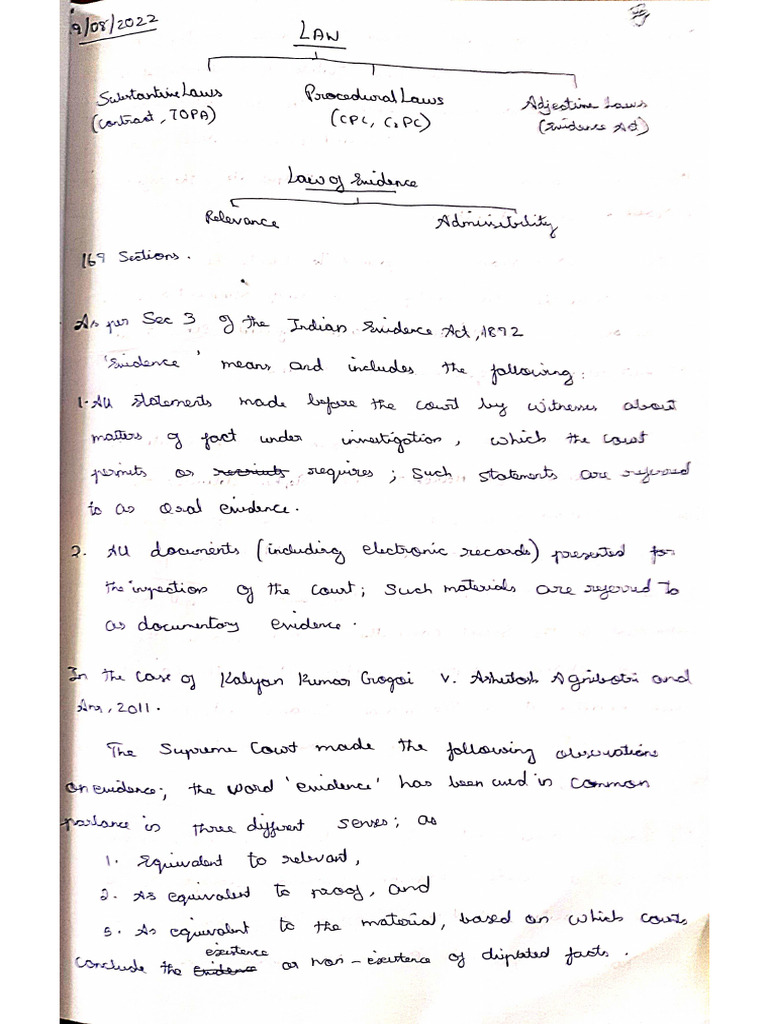 9/08/2022
LAW
Substantive Laws
Procedural Laws
Adjective Laws
(Contract, TOPA)
(CPC, CrPC)
(Evidence Act)
Law of Evidence
Relevance
Admissibility
169 Sections.
As per Sec 3 of the Indian Evidence Act, 1892
'Evidence' means and includes the following:
1. All statements made before the court by witnesses about
matters of fact under investigation, which the court
permits or requires; Such statements are referred
to as Oral evidence.
2. All documents (including electronic records) presented for
the inspection of the court; Such materials are referred to
as documentary evidence.
In the case of Kalyan Kumar Gogoi v. Ashutosh Agnihotri and
Anr, 2011.
The Supreme Court made the following observations
on evidence; the word 'evidence' has been used in common
parlance in three different senses; as
1. Equivalent to relevant,
2. As equivalent to proof, and
3. As equivalent to the material, based on which courts
existence
conclude the evidence or non-existence of disputed facts.